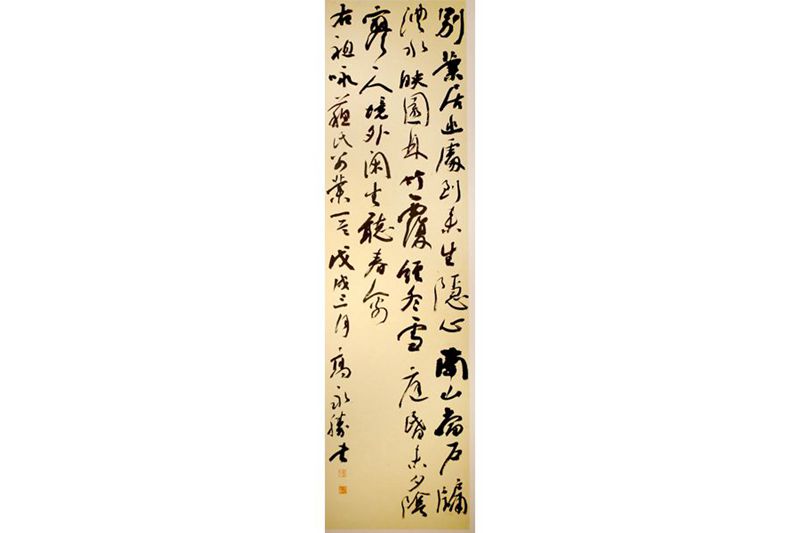 別業居幽處到来生隱心南山當戶牖
灃水映園林竹覆經冬雪庭昏未夕陰
寥々人境外閑坐聽春禽
右祖咏蘇氏別業一首戊戌三月高永勝书